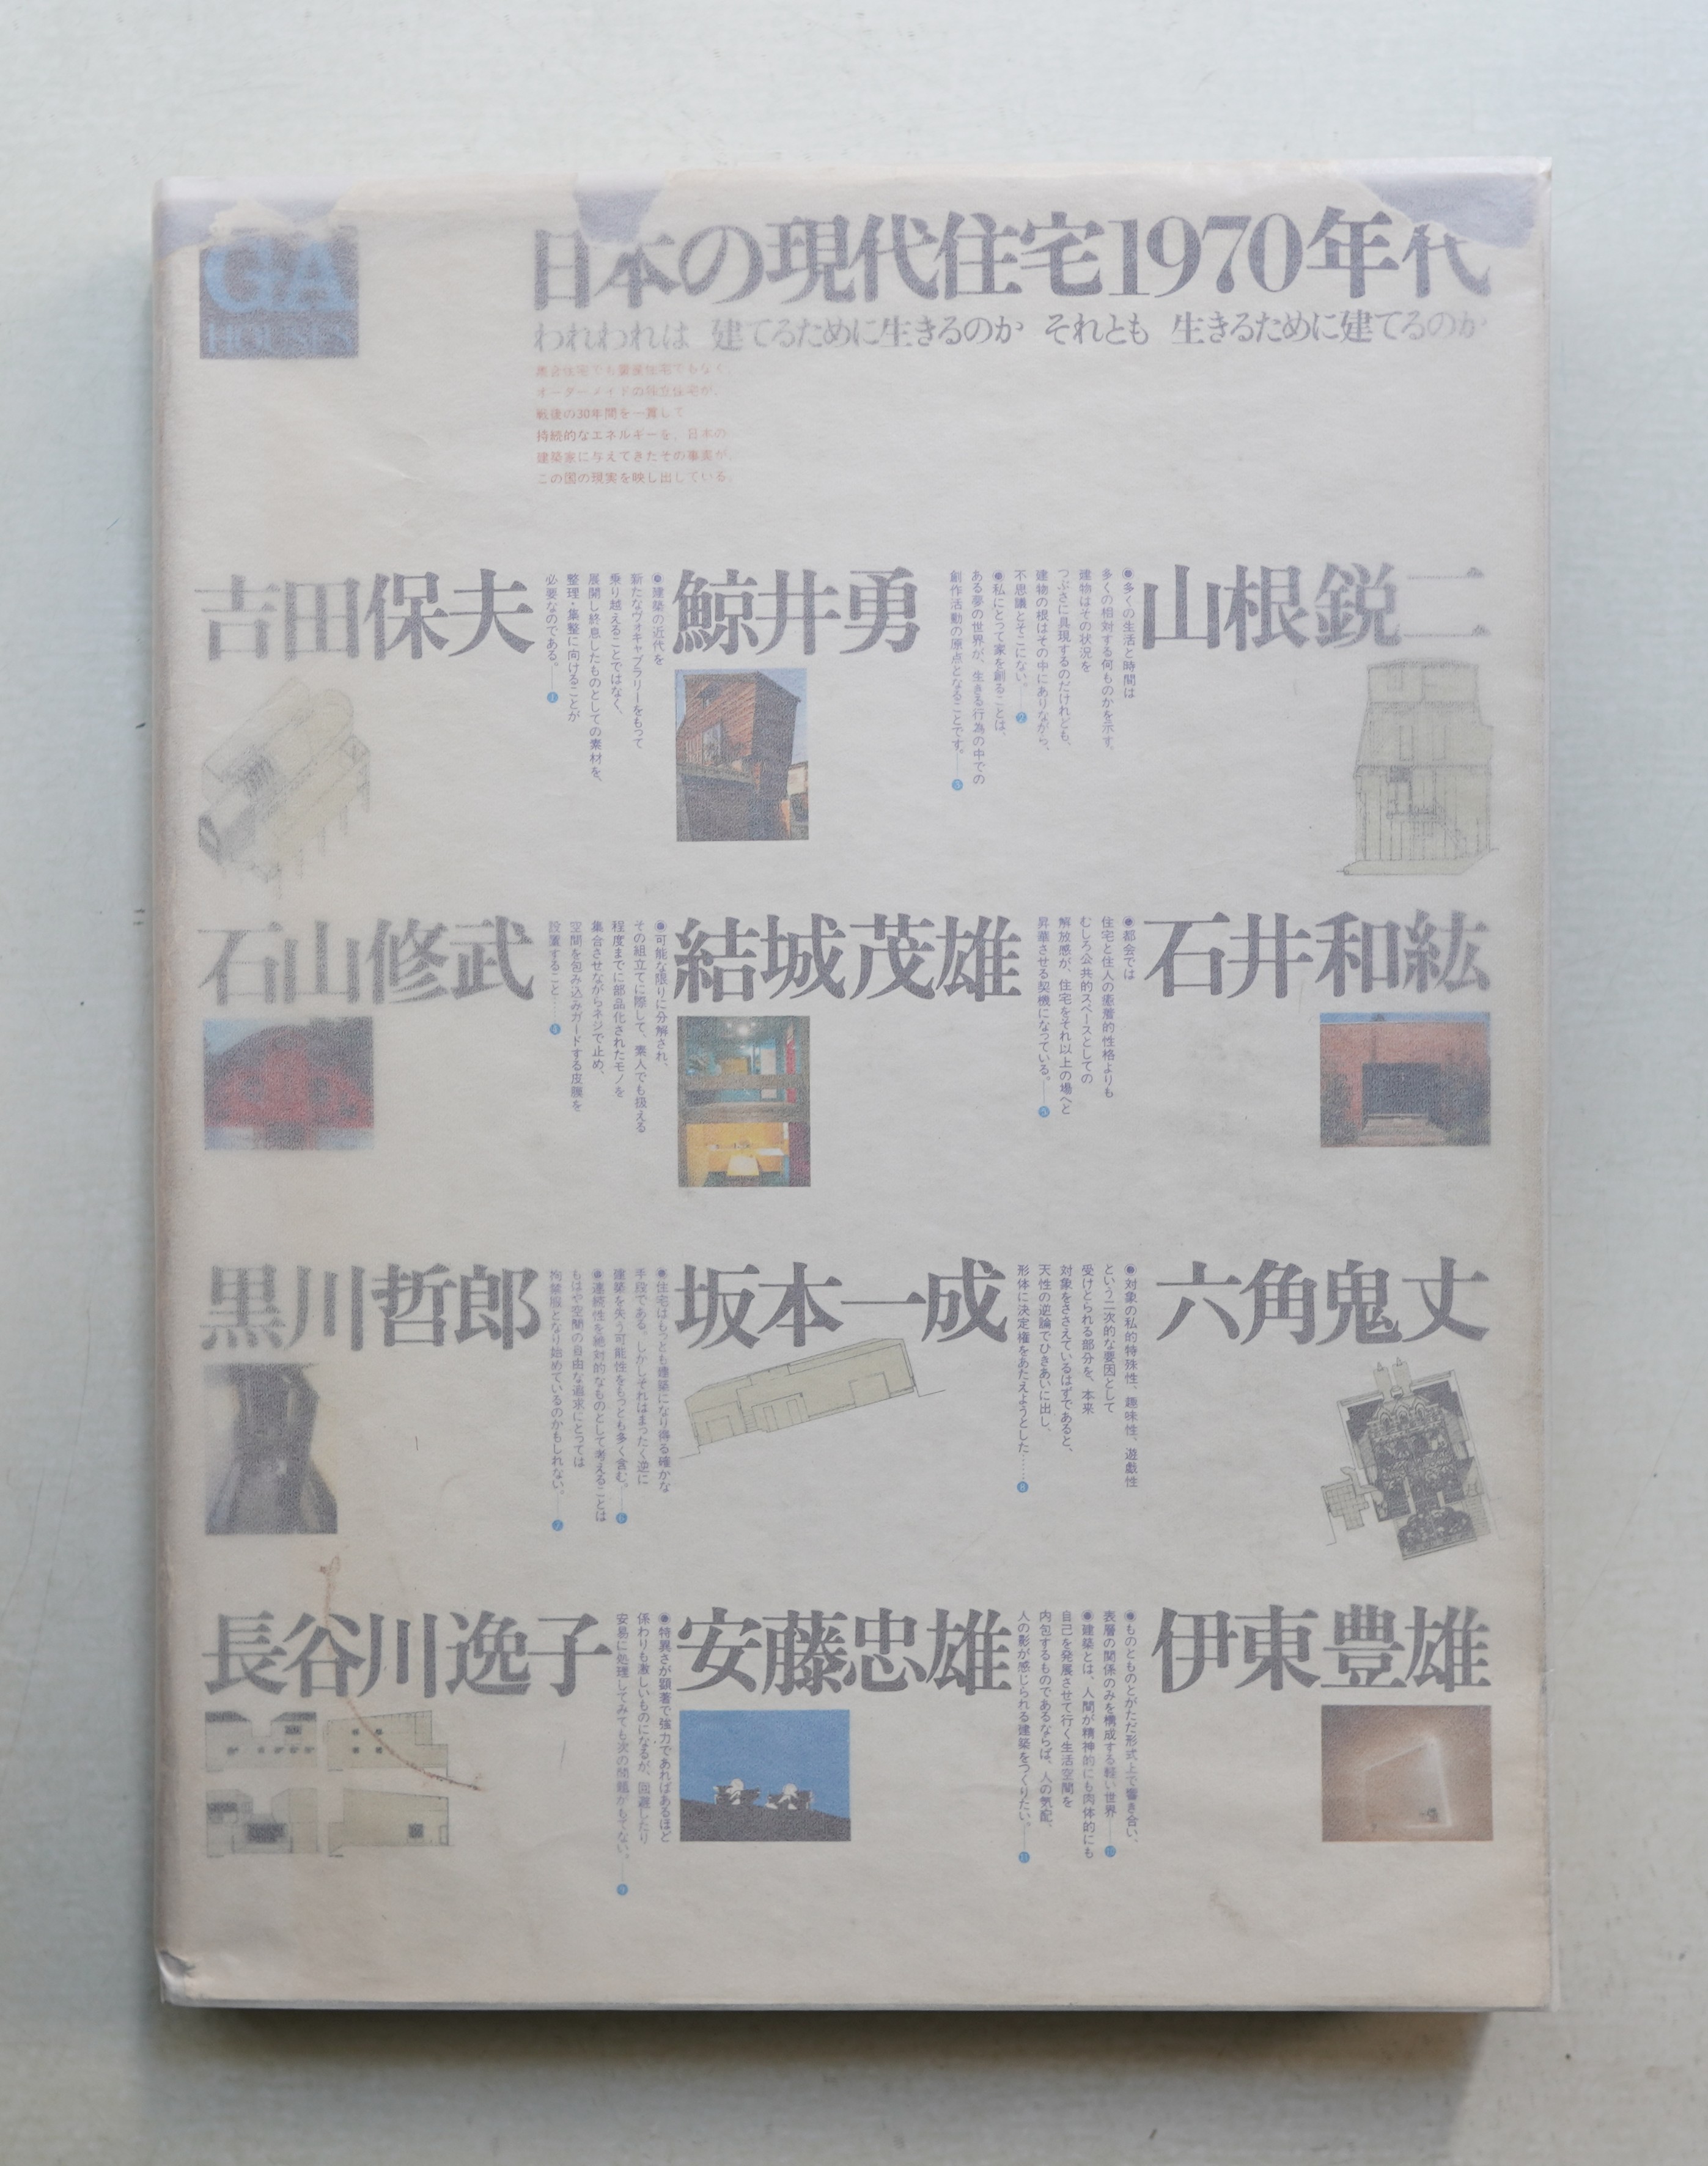 GA
HOUSES
日本の現代住宅1970年代
われわれは 建てるために生きるのか それとも 生きるために建てるのか
集合住宅でも量産住宅でもなく、
オーダーメイドの独立住宅が、
戦後の30年間を一貫して
持続的なエネルギーを、日本の
建築家に与えてきたその事実が、
この国の現実を映し出している。
吉田保夫
鯨井勇
山根鋭二
●多くの生活と時間は
多くの相対する何ものかを示す。
建物はその状況を
つぶさに具現するのだけれども、
建物の根はその中にありながら、
不思議とそこにない。—2
●私にとって家を創ることは、
ある夢の世界が、生きる行為の中での
創作活動の原点となることです。—3
●建築の近代を
新たなヴォキャブラリーをもって
乗り越えることではなく、
展開し終息したものとしての素材を、
整理・集整に向けることが
必要なのである。—1
石山修武
結城茂雄
石井和紘
●都会では
住宅と住人の癒着的性格よりも
むしろ公共的スペースとしての
解放感が、住宅をそれ以上の場へと
昇華させる契機になっている。—5
●可能な限りに分解され、
その組立てに際して、素人でも扱える
程度までに部品化されたモノを
集合させながらネジで止め、
空間を包み込みガードする皮膜を
設置すること……4
黒川哲郎
坂本一成
六角鬼丈
●対象の私的特殊性、趣味性、遊戯性
という二次的な要因として
受けとられる部分を、本来
対象をささえているはずであると、
天性の逆論でひきあいに出し、
形体に決定権をあたえようとした……8
●住宅はもっとも建築になり得る確かな
手段である。しかしそれはまったく逆に
建築を失う可能性をもっとも多く含む。—6
●連続性を絶対的なものとして考えることは
もはや空間の自由な追求にとっては
拘禁服となり始めているのかもしれない。—7
長谷川逸子
安藤忠雄
伊東豊雄
●ものとものとがただ形式上で響き合い、
表層の関係のみを構成する軽い世界—10
●建築とは、人間が精神的にも肉体的にも
自己を発展させて行く生活空間を
内包するものであるならば、人の気配、
人の影が感じられる建築をつくりたい。—11
●特異さが顕著で強力であればあるほど
係わりも激しいものになるが、回避したり
安易に処理してみても次の問題がもてない。—9